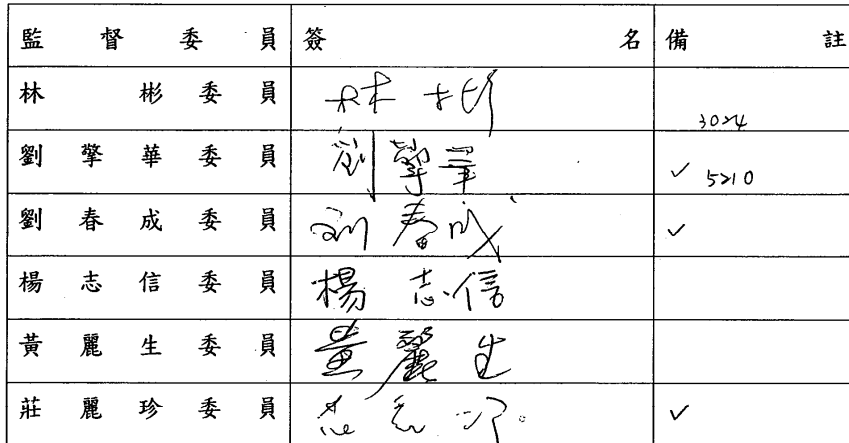 監督委員 簽名 備註
林彬委員 林彬 3024
劉擎華委員 劉擎華 ✓ 5210
劉春成委員 劉春成 ✓
楊志信委員 楊志信
黃麗生委員 黃麗生
莊麗珍委員 ✓